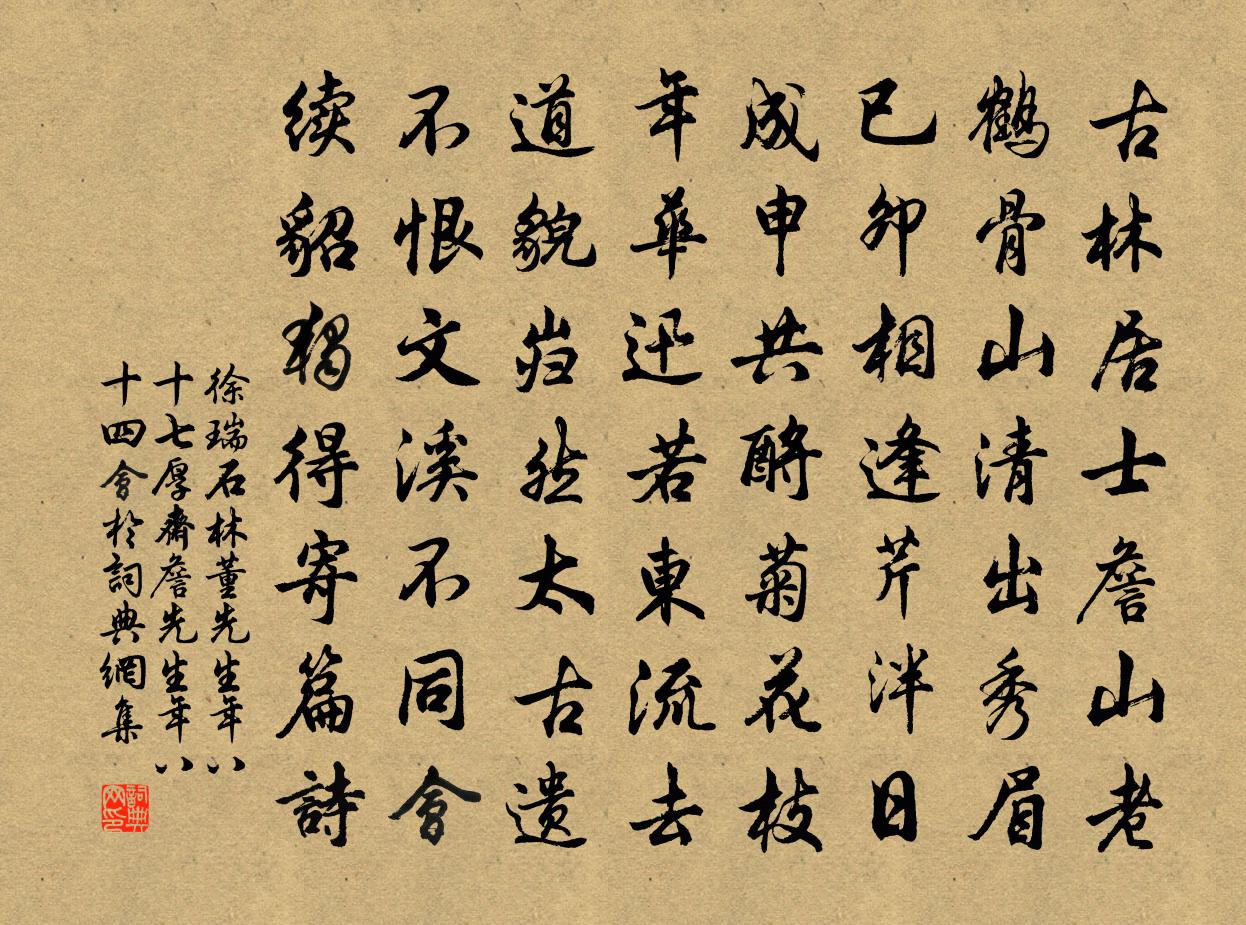 古林居士詹山老
鶴骨山清出秀眉
已卯相逢芹泮日
成申共酹菊花枝
年華迅若東流去
道貌岿然太古遗
不恨文溪不同會
续貂獨得寄篇詩
徐瑞石林董先生年八
十七厚齋詹先生年八
十四會於詞典網集
詞典网印